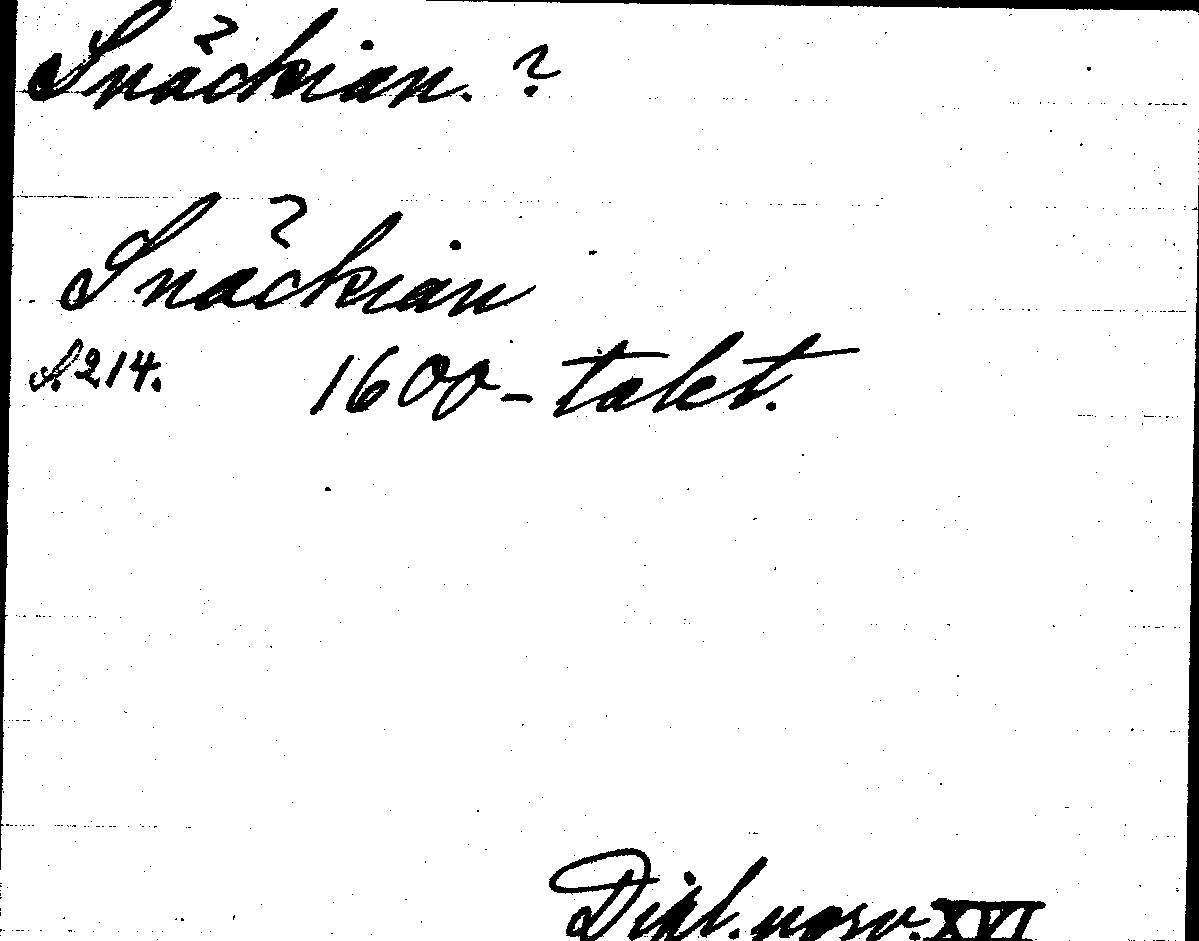 Snäckian. ?
Snäckian
S. 214. 1600-talet.
Dipl. norv. XVI